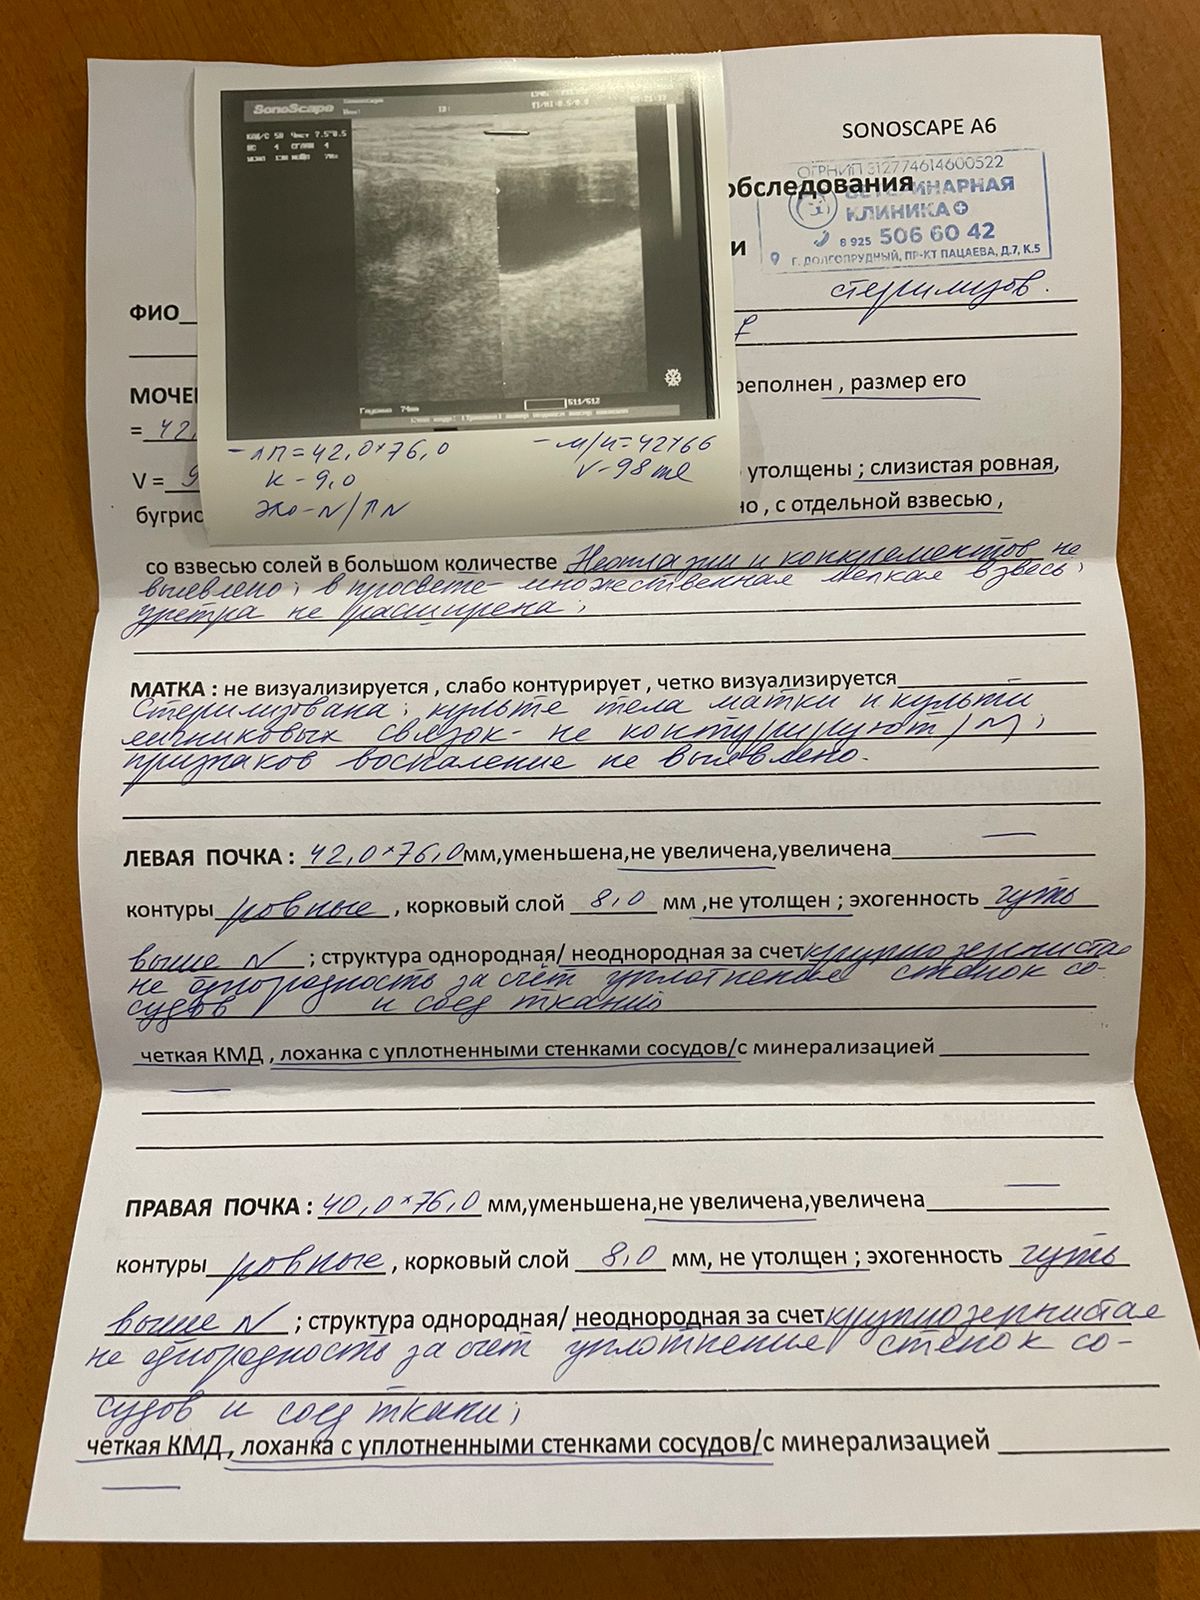 SONOSCAPE A6
SonoScape
обследования
ОГРНИП 312774614600522
ВЕТЕРИНАРНАЯ
КЛИНИКА
8 925 506 60 42
Г. ДОЛГОПРУДНЫЙ, ПР-КТ ПАЦАЕВА, Д.7, К.5
и
стерилизов.
ФИО
МОЧЕ
реполнен , размер его
= 42,
511/512
- ЛП = 42,0×76,0
- м/п = 42×66
К - 9,0
V - 98 ml
V = 9
утолщены ; слизистая ровная,
эхо - N / П N
бугрис
но , с отдельной взвесью ,
со взвесью солей в большом количестве Неоплазии и конкрементов не
выявлено; в просвете - множественная мелкая взвесь;
уретра не расширена;
МАТКА : не визуализируется , слабо контурирует , четко визуализируется
Стерилизована; культе тела матки и культи
яичниковых связок - не контурируют /N/;
признаков воспаление не выявлено.
ЛЕВАЯ ПОЧКА : 42,0×76,0 мм,уменьшена,не увеличена,увеличена
контуры ровные , корковый слой 8,0 мм ,не утолщен ; эхогенность чуть
выше N ; структура однородная/ неоднородная за счет крупнозернистая
не однородность за счёт уплотнения стенок со-
судов и соед ткани
четкая КМД , лоханка с уплотненными стенками сосудов/с минерализацией
ПРАВАЯ ПОЧКА : 40,0×76,0 мм,уменьшена,не увеличена,увеличена
контуры ровные , корковый слой 8,0 мм, не утолщен ; эхогенность чуть
выше N ; структура однородная/ неоднородная за счет крупнозернистая
не однородность за счет уплотнения стенок со-
судов и соед ткани;
четкая КМД , лоханка с уплотненными стенками сосудов/с минерализацией